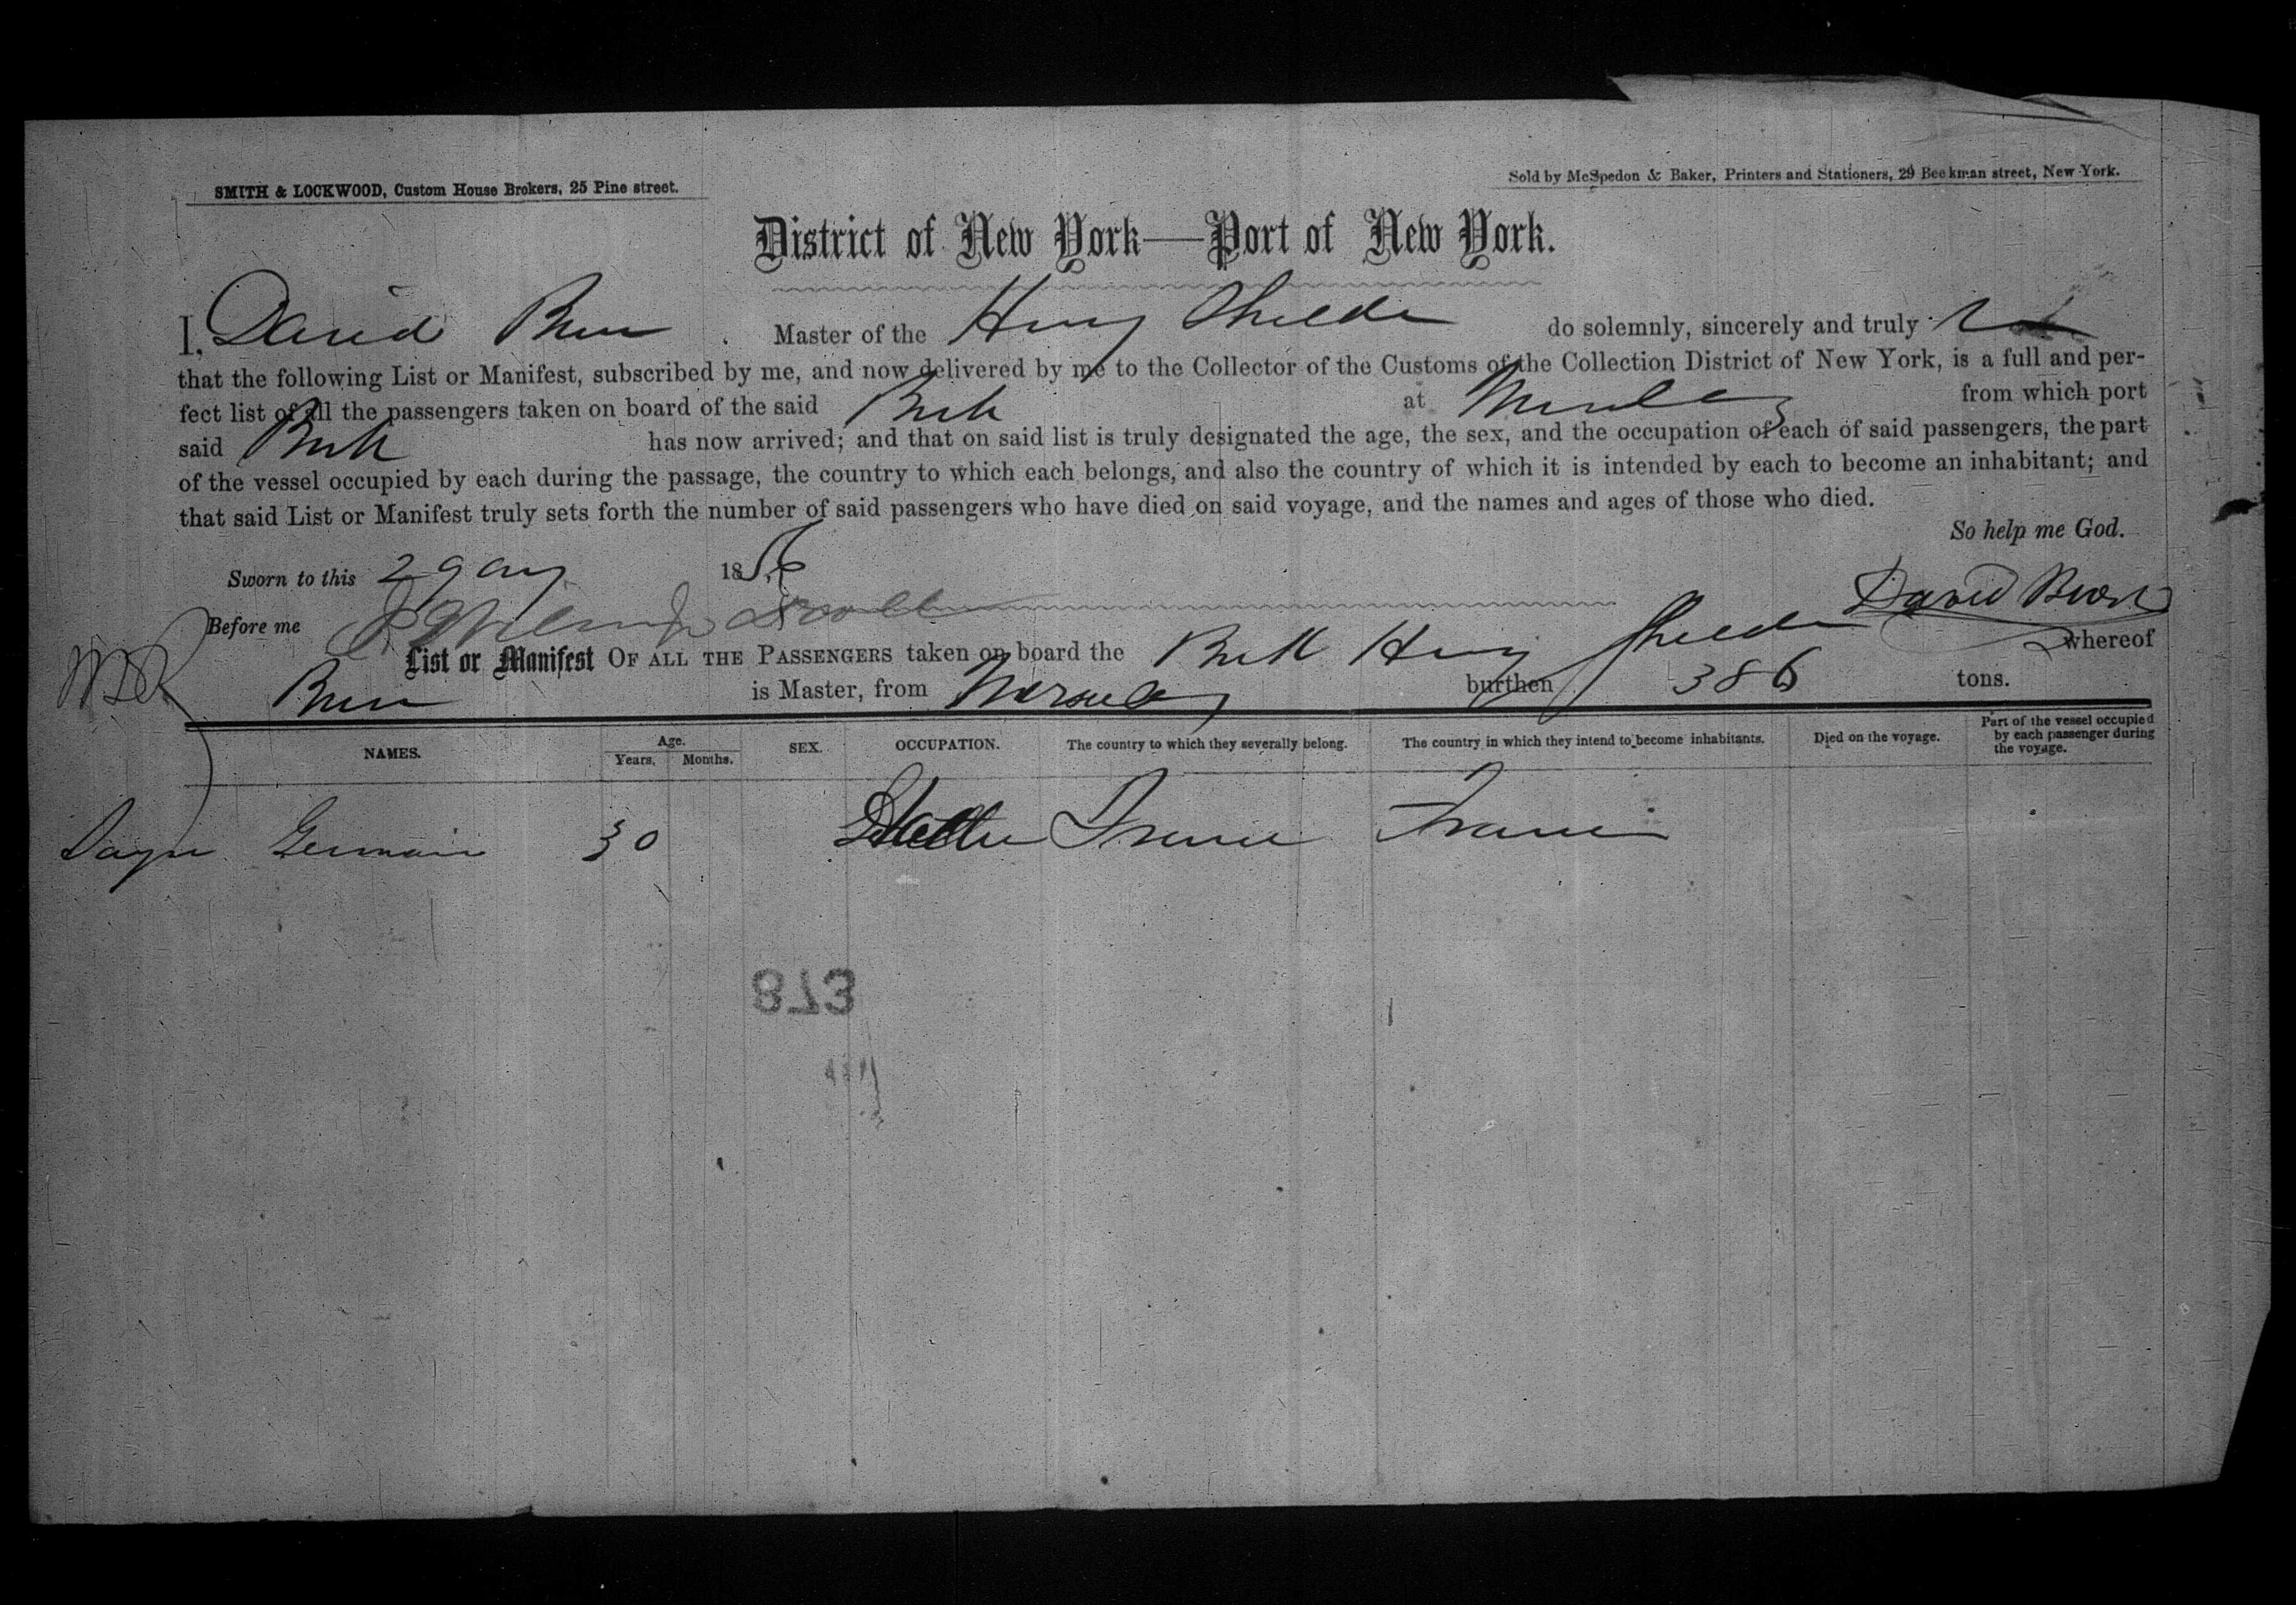 SMITH & LOCKWOOD, Custom House Brokers, 25 Pine street.
Sold by McSpedon & Baker, Printers and Stationers, 29 Beekman street, New York.
District of New York—Port of New York.
I, David Master of the Henry do solemnly, sincerely and truly
that the following List or Manifest, subscribed by me, and now delivered by me to the Collector of the Customs of the Collection District of New York, is a full and per-
fect list of all the passengers taken on board of the said at from which port
said has now arrived; and that on said list is truly designated the age, the sex, and the occupation of each of said passengers, the part
of the vessel occupied by each during the passage, the country to which each belongs, and also the country of which it is intended by each to become an inhabitant; and
that said List or Manifest truly sets forth the number of said passengers who have died on said voyage, and the names and ages of those who died.
So help me God.
Sworn to this 29 Aug 1856
David
Before me
List or Manifest OF ALL THE PASSENGERS taken on board the Henry whereof
is Master, from burthen 386 tons.
NAMES. Age. Years. Months. SEX. OCCUPATION. The country to which they severally belong. The country in which they intend to become inhabitants. Died on the voyage. Part of the vessel occupied by each passenger during the voyage.
Germain 30 France France
873